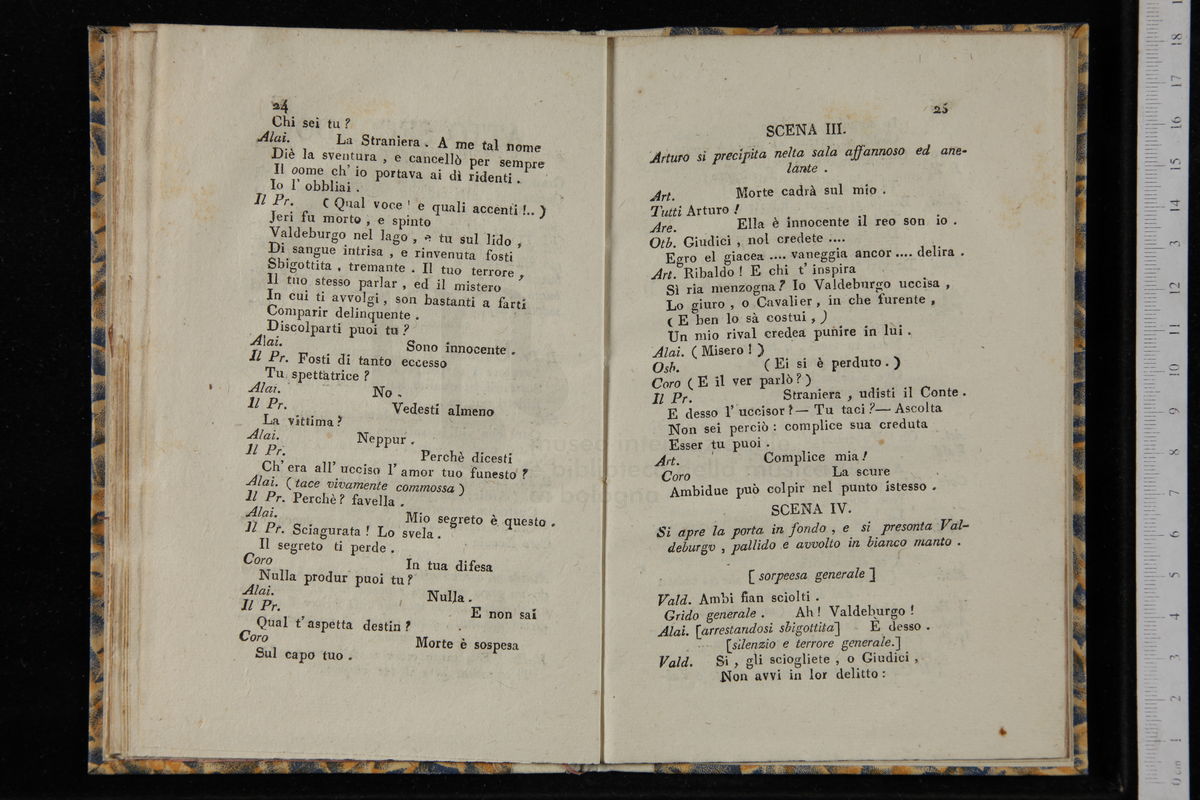 24
Chi sei tu ?
Alai. La Straniera . A me tal nome
Diè la sventura , e cancellò per sempre
Il oome ch' io portava ai dì ridenti .
Io l' obbliai .
Il Pr. ( Qual voce ' e quali accenti !.. )
Jeri fu morto , e spinto
Valdeburgo nel lago , e tu sul lido ,
Di sangue intrisa , e rinvenuta fosti
Sbigottita , tremante . Il tuo terrore ,
Il tuo stesso parlar , ed il mistero
In cui ti avvolgi , son bastanti a farti
Comparir delinquente .
Discolparti puoi tu ?
Alai. Sono innocente .
Il Pr. Fosti di tanto eccesso
Tu spettatrice ?
Alai. No .
Il Pr. Vedesti almeno
La vittima ?
Alai. Neppur .
Il Pr. Perchè dicesti
Ch' era all' ucciso l' amor tuo funesto ?
Alai. ( tace vivamente commossa )
Il Pr. Perchè ? favella .
Alai. Mio segreto è questo .
Il Pr. Sciagurata ! Lo svela .
Il segreto ti perde .
Coro In tua difesa
Nulla produr puoi tu ?
Alai. Nulla .
Il Pr. E non sai
Qual t' aspetta destin ?
Coro Morte è sospesa
Sul capo tuo .
25
SCENA III.
Arturo si precipita nelta sala affannoso ed ane-
lante .
Art. Morte cadrà sul mio .
Tutti Arturo !
Are. Ella è innocente il reo son io .
Otb. Giudici , nol credete ....
Egro el giacea .... vaneggia ancor .... delira .
Art. Ribaldo ! E chi t' inspira
Sì ria menzogna ? Io Valdeburgo uccisa ,
Lo giuro , o Cavalier , in che furente ,
( E ben lo sà costui , )
Un mio rival credea punire in lui .
Alai. ( Misero ! )
Osb. ( Ei si è perduto . )
Coro ( E il ver parlò ? )
Il Pr. Straniera , udisti il Conte .
E desso l' uccisor ? — Tu taci ? — Ascolta
Non sei perciò : complice sua creduta
Esser tu puoi .
Art. Complice mia !
Coro La scure
Ambidue può colpir nel punto istesso .
SCENA IV.
Si apre la porta in fondo , e si presonta Val-
deburgo , pallido e avvolto in bianco manto .
[ sorpeesa generale ]
Vald. Ambi fian sciolti .
Grido generale . Ah ! Valdeburgo !
Alai. [arrestandosi sbigottita] E desso .
[silenzio e terrore generale.]
Vald. Si , gli sciogliete , o Giudici ,
Non avvi in lor delitto :